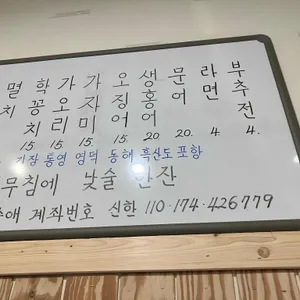 멸치
학꽁치
가오리
가자미
오징어
생홍어
문어
라면
부추전
15. 15. 15. 15. 20 20. 4 4.
기장 통영 영덕 동해 흑산도 포항
무침에 낮술 한잔
계좌번호 신한 110-174-426779